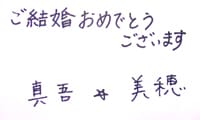 ご結婚おめでとう
ございます
真吾 ☆ 美穂